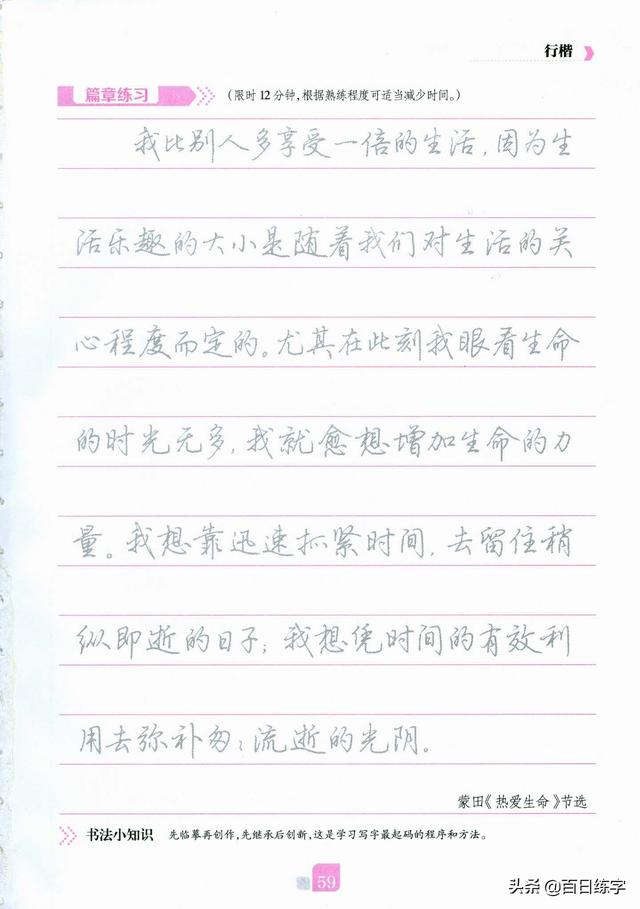 行楷
篇章练习
（限时12分钟，根据熟练程度可适当减少时间。）
我比别人多享受一倍的生活，因为生
活乐趣的大小是随着我们对生活的关
心程度而定的。尤其在此刻我眼看生命
的时光无多，我就愈想增加生命的力
量。我想靠迅速抓紧时间，去留住稍
纵即逝的日子；我想凭时间的有效利
用去弥补匆匆流逝的光阴。
蒙田《热爱生命》节选
书法小知识 先临摹再创作，先继承后创新，这是学习写字最起码的程序和方法。
59
头条 @百日练字